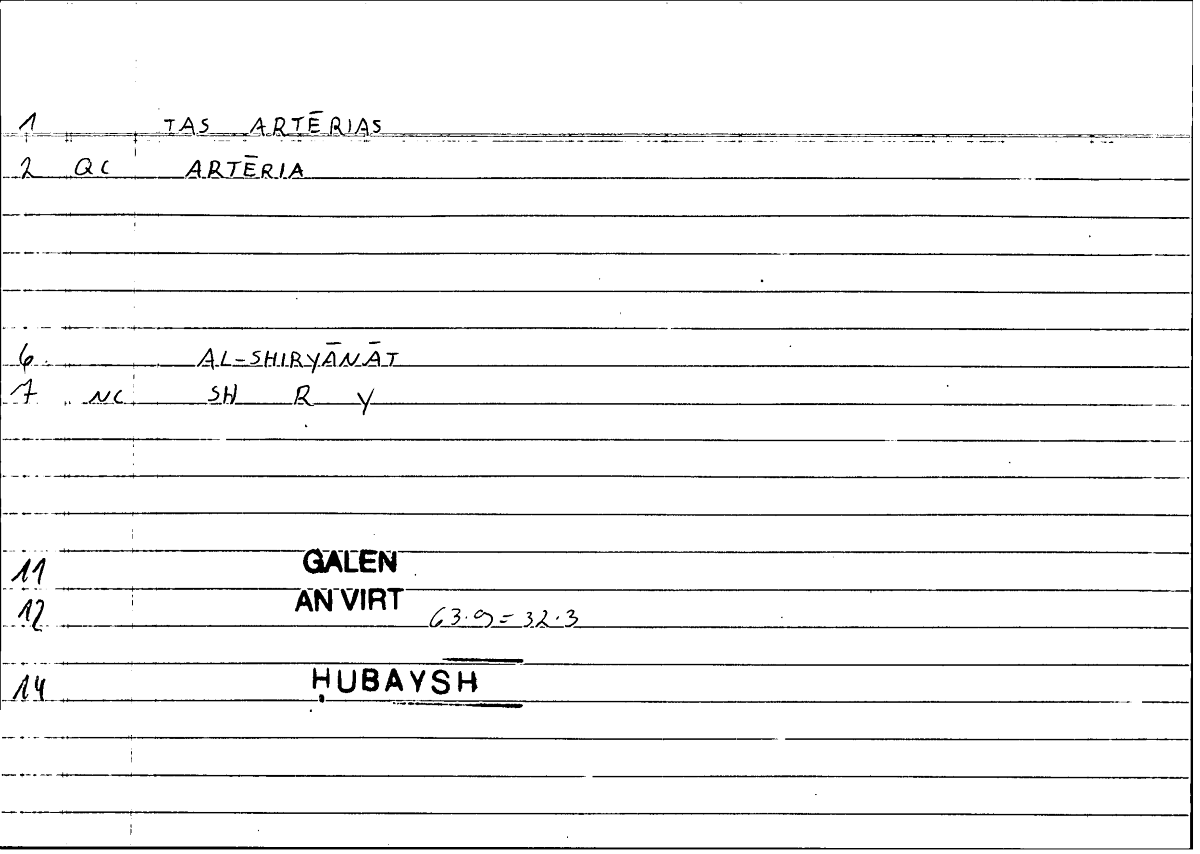 1 TAS ARTĒRIAS
2 QC ARTĒRIA
6. AL-SHIRYĀNĀT
7 NC SH R Y
11 GALEN
12 AN VIRT 63.9 = 32.3
14 ḤUBAYSH